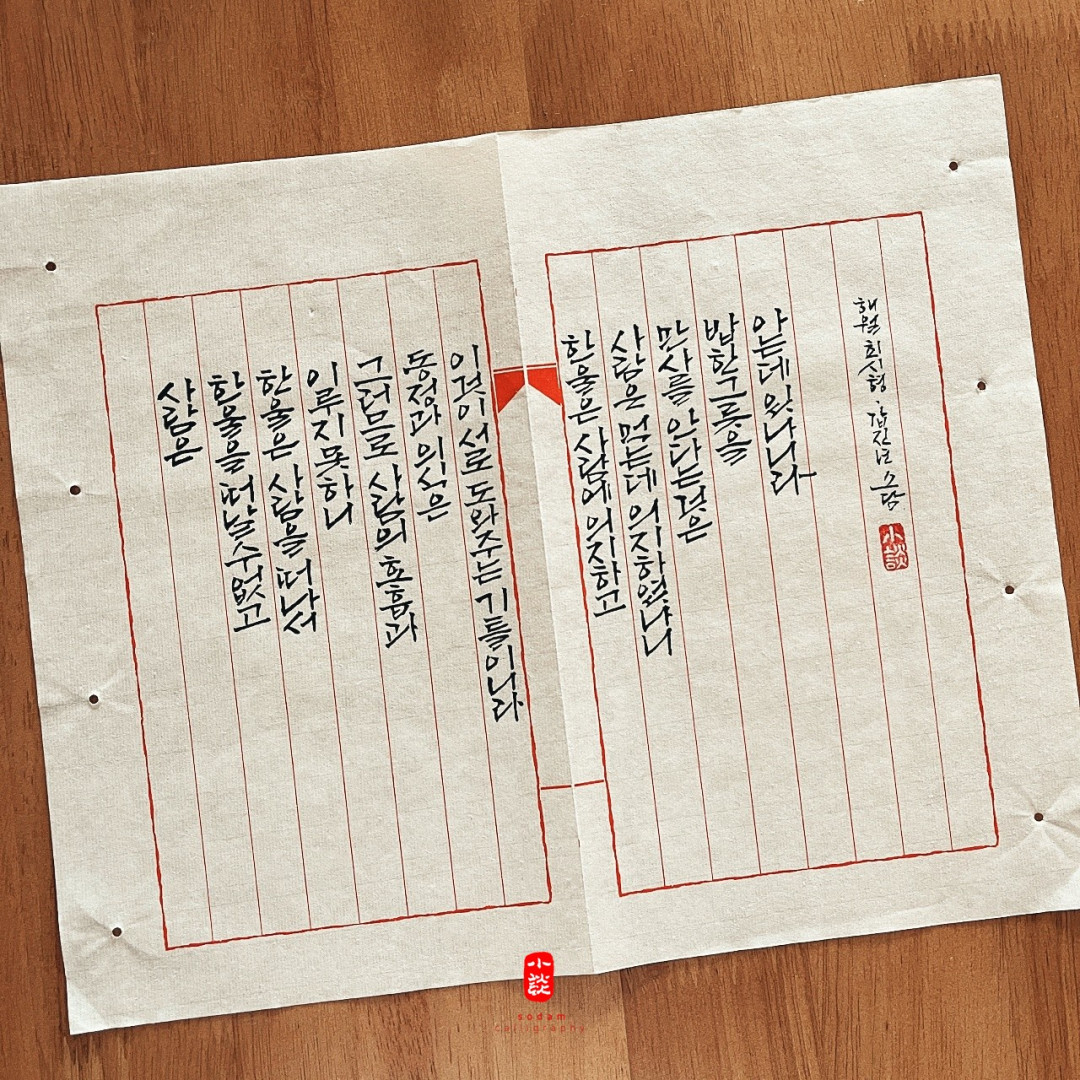 사람은
한울을 떠날 수 없고
한울은 사람을 떠나서
이루지 못하니
그러므로 사람의 호흡과
동정과 의식은
이것이 서로 도와주는 기틀이니라
한울은 사람에 의지하고
사람은 먹는데 의지하였나니
만사를 안다는 것은
밥 한 그릇을
아는데 있나니라
해월 최시형 갑진년 소담
小談
小談
sodam
calligraphy